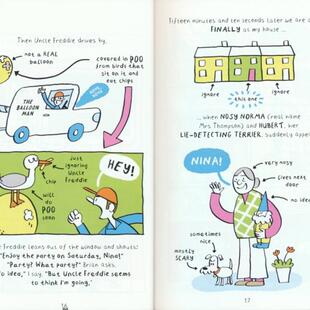 Then Uncle Freddie drives by,
not a REAL
balloon
covered in POO
from birds that
sit on it and
eat chips
THE
BALLOON
MAN
HONK
HONK
just
ignoring
Uncle
Freddie
chip
will
do
POO
soon
HEY!
Freddie leans out of the window and shouts:
"Enjoy the party on Saturday, Nina!"
"Party? What party?" Brian asks.
idea," I say. "But Uncle Freddie seems
to think I'm going."
16
Fifteen minutes and ten seconds later we are
FINALLY at my house ...
ignore
this one
ignore
... when NOSY NORMA (real name
Mrs Thompson) and HUBERT, her
LIE-DETECTING TERRIER, suddenly
NINA!
very nosy
lives next
door
no
sometimes
nice,
mostly
SCARY
17